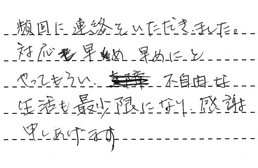 頻回に連絡をいただきました。
対応も早め早めにと
やってもらい 不自由な
生活も最少限になり、感謝
申しあげます